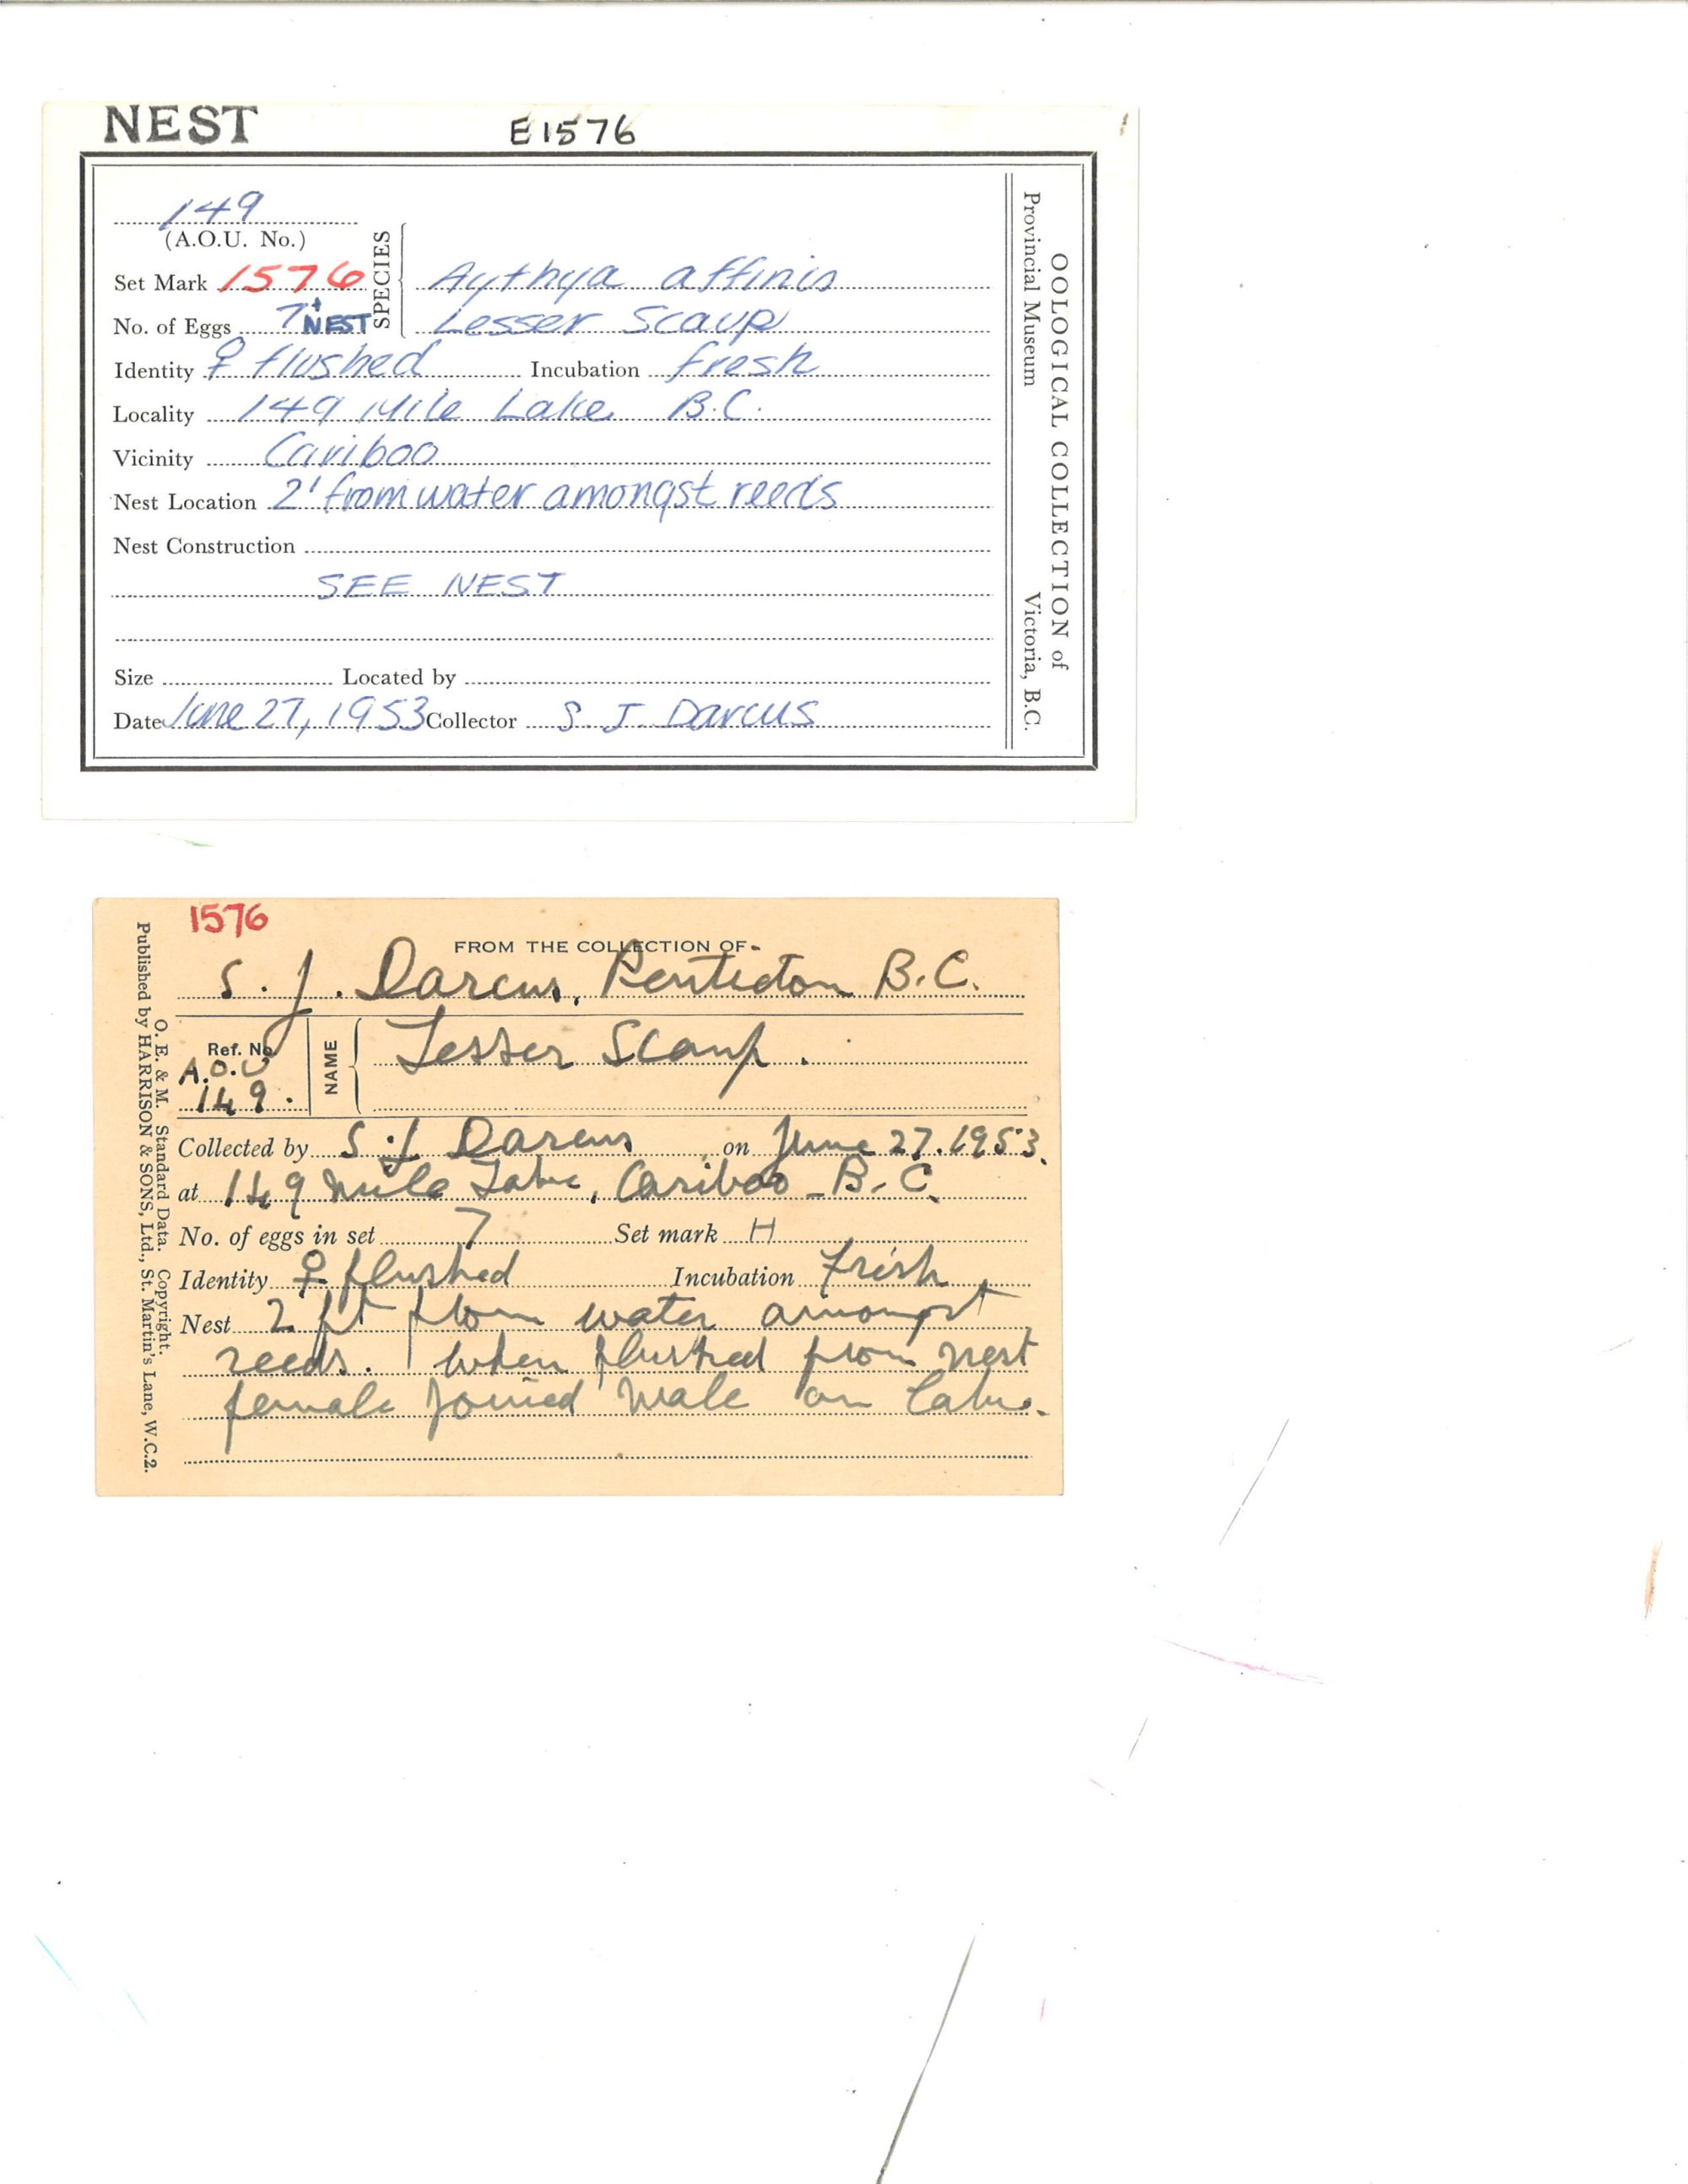 NEST E1576
149
(A.O.U. No.)
SPECIES
Set Mark 1576 Aythya affinis
No. of Eggs 7 + NEST Lesser Scaup
Identity ♀ flushed Incubation fresh
Locality 149 Mile Lake B.C.
Vicinity Cariboo
Nest Location 2' from water amongst reeds
Nest Construction
SEE NEST
Size Located by
Date June 27, 1953 Collector S. J. Darcus
OOLOGICAL COLLECTION of
Provincial Museum Victoria, B.C.
1576
FROM THE COLLECTION OF
S. J. Darcus, Penticton B.C.
Ref. No.
A.O.U
149.
NAME
Lesser Scaup.
Collected by S. J. Darcus on June 27. 1953.
at 149 mile Lake, Cariboo - B.C.
No. of eggs in set 7 Set mark H
Identity ♀ flushed Incubation Fresh
Nest 2 ft from water amongst
reeds. When flushed from nest
female joined male on lake.
O. E. & M. Standard Data. Copyright.
Published by HARRISON & SONS, Ltd., St. Martin's Lane, W.C.2.